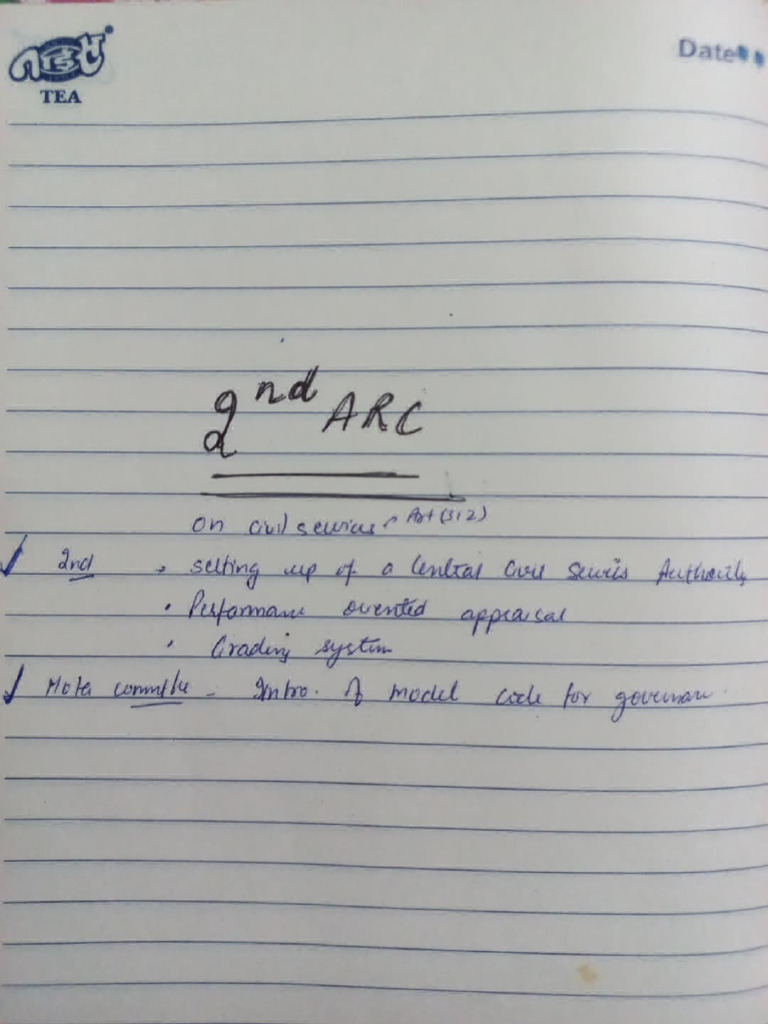 TEA
Date
2nd ARC
on civil services - Art (312)
2nd • setting up of a Central Civil Services Authority
• Performance oriented appraisal
• Grading system
Hota committee - Intro. of model code for governance